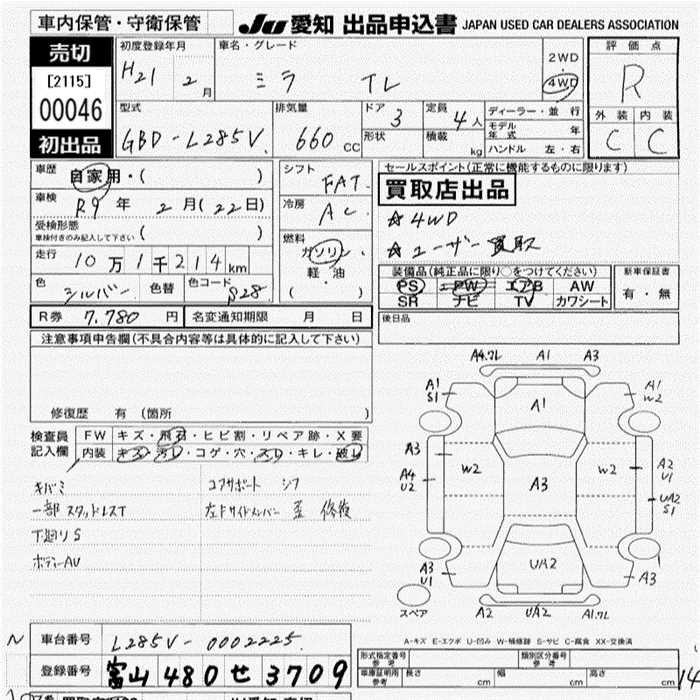 車内保管・守衛保管
JU 愛知 出品申込書 JAPAN USED CAR DEALERS ASSOCIATION
売切
[2115]
00046
初出品
初度登録年月
H21 2 月
車名・グレード
ミラ TL
2WD
4WD
評価点
R
外装 内装
C C
型式
GBD-L285V
排気量
660 CC
ドア 3
形状
定員 4 人
積載 kg
ディーラー・並行
モデル年式 年
ハンドル 左・右
車歴
自家用・( )
車検
R9 年 2 月(22日)
受検形態
車検付きのみ記入して下さい ( )
走行
10万1千214km
色 シルバー 色替 色コード S28
シフト
FAT
冷房
AC
燃料
ガソリン
軽・油
( )
セールスポイント(正常に機能するものに限ります)
買取店出品
☆4WD
☆ユーザー買取
装備品(純正品に限り○をつけてください)
PS PW エアB AW
SR ナビ TV カワシート
新車保証書
有・無
R券 7,780 円 名変通知期限 月 日
後日品
注意事項申告欄(不具合内容等は具体的に記入して下さい)
修復歴 有(箇所 )
検査員記入欄
FW キズ・飛石・ヒビ割・リペア跡・X要
内装 キズ・汚レ・コゲ・穴・スレ・キレ・破レ
キバミ
一部スタッドレスT
下廻りS
ボディーAU
コアサポート シフ
左Fサイドメンバー 歪 修復
A4.7L A1 A3
A1 S1
A1
A1 W2
A3
A4 U2
W2
A3
W2
A2 U1
UA2 S1
A3 U1
UA2
A3
スペア
A2 UA2 A1.7L
A-キズ E-エクボ U-凹み W-補修跡 S-サビ C-腐食 XX-交換済
N 車台番号 L285V-0002225
登録番号 富山 480 せ 3709
形式指定番号 参考
類別区分番号 参考
車庫証明用 参考 長さ cm 幅 cm 高さ cm
14